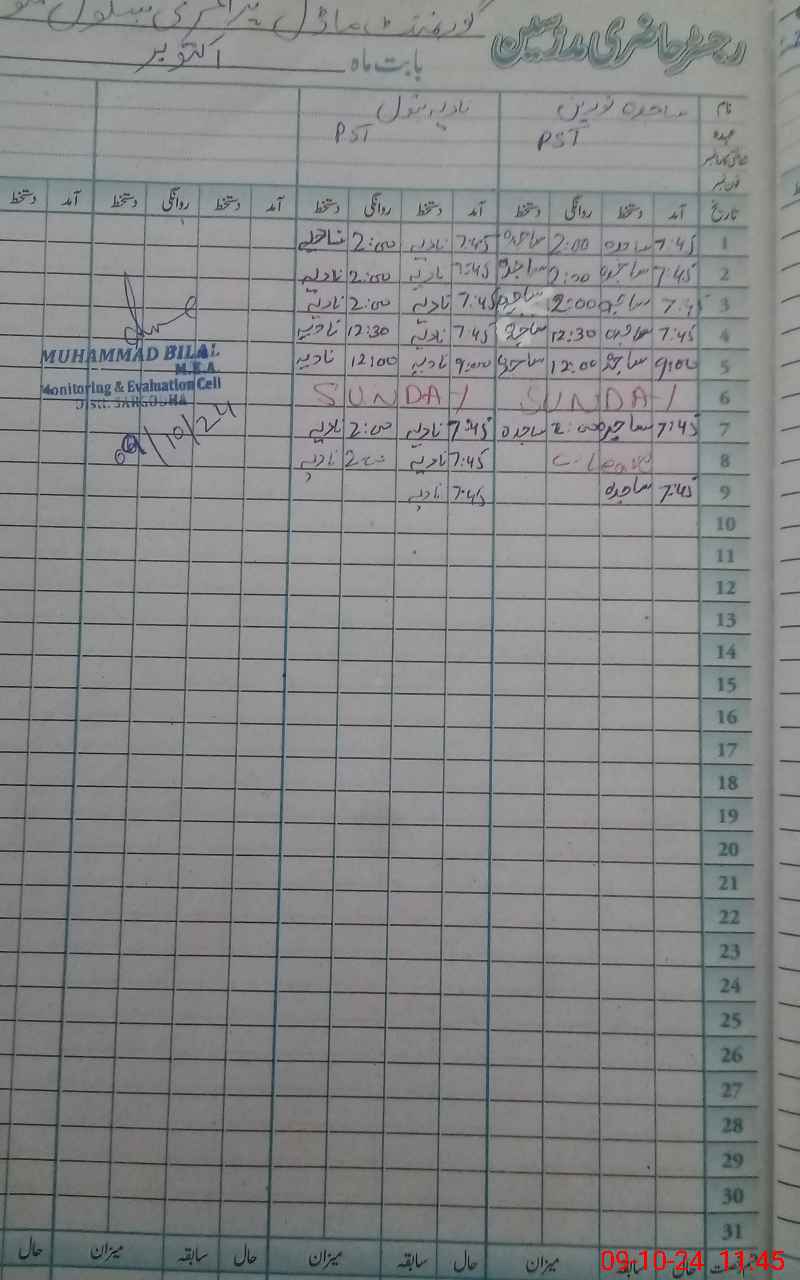 رجسٹر حاضری مدرسین گورنمنٹ ماڈل پرائمری سکول
بابت ماہ اکتوبر
نام ساجدہ نورین نادیہ بتول
عہدہ PST PST
تاریخ آمد دستخط روانگی دستخط آمد دستخط روانگی دستخط آمد دستخط روانگی دستخط آمد دستخط
1 7:45 ساجدہ 2:00 ساجدہ 7:45 نادیہ 2:00 نادیہ
2 7:45 ساجدہ 2:00 ساجدہ 7:45 نادیہ 2:00 نادیہ
3 7:45 ساجدہ 2:00 ساجدہ 7:45 نادیہ 2:00 نادیہ
4 7:45 ساجدہ 12:30 ساجدہ 7:45 نادیہ 12:30 نادیہ
5 9:00 ساجدہ 12:00 ساجدہ 9:00 نادیہ 12:00 نادیہ
6 SUNDAY SUNDAY
7 7:45 ساجدہ 2:00 ساجدہ 7:45 نادیہ 2:00 نادیہ
8 C-leave 7:45 نادیہ 2:00 نادیہ
9 7:45 ساجدہ 7:45 نادیہ
10
11
12
13
14
15
16
17
18
19
20
21
22
23
24
25
26
27
28
29
30
31
میزان حال سابقہ میزان حال سابقہ میزان حال
MUHAMMAD BILAL
M.E.A
Monitoring & Evaluation Cell
Distt. SARGODHA
09/10/24
09-10-24 11:45